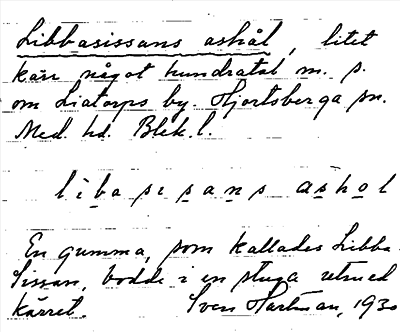 Libbasissans askål, litet
kärr något hundratal m. s.
om Liatorps by. Hjortsberga sn.
Med. hd. Blek. l.
l i b a s i s a n s a s h o l
En gumma, som kallades Libba-
Sissan, bodde i en stuga utmed
kärret. Sven Hartman, 1930